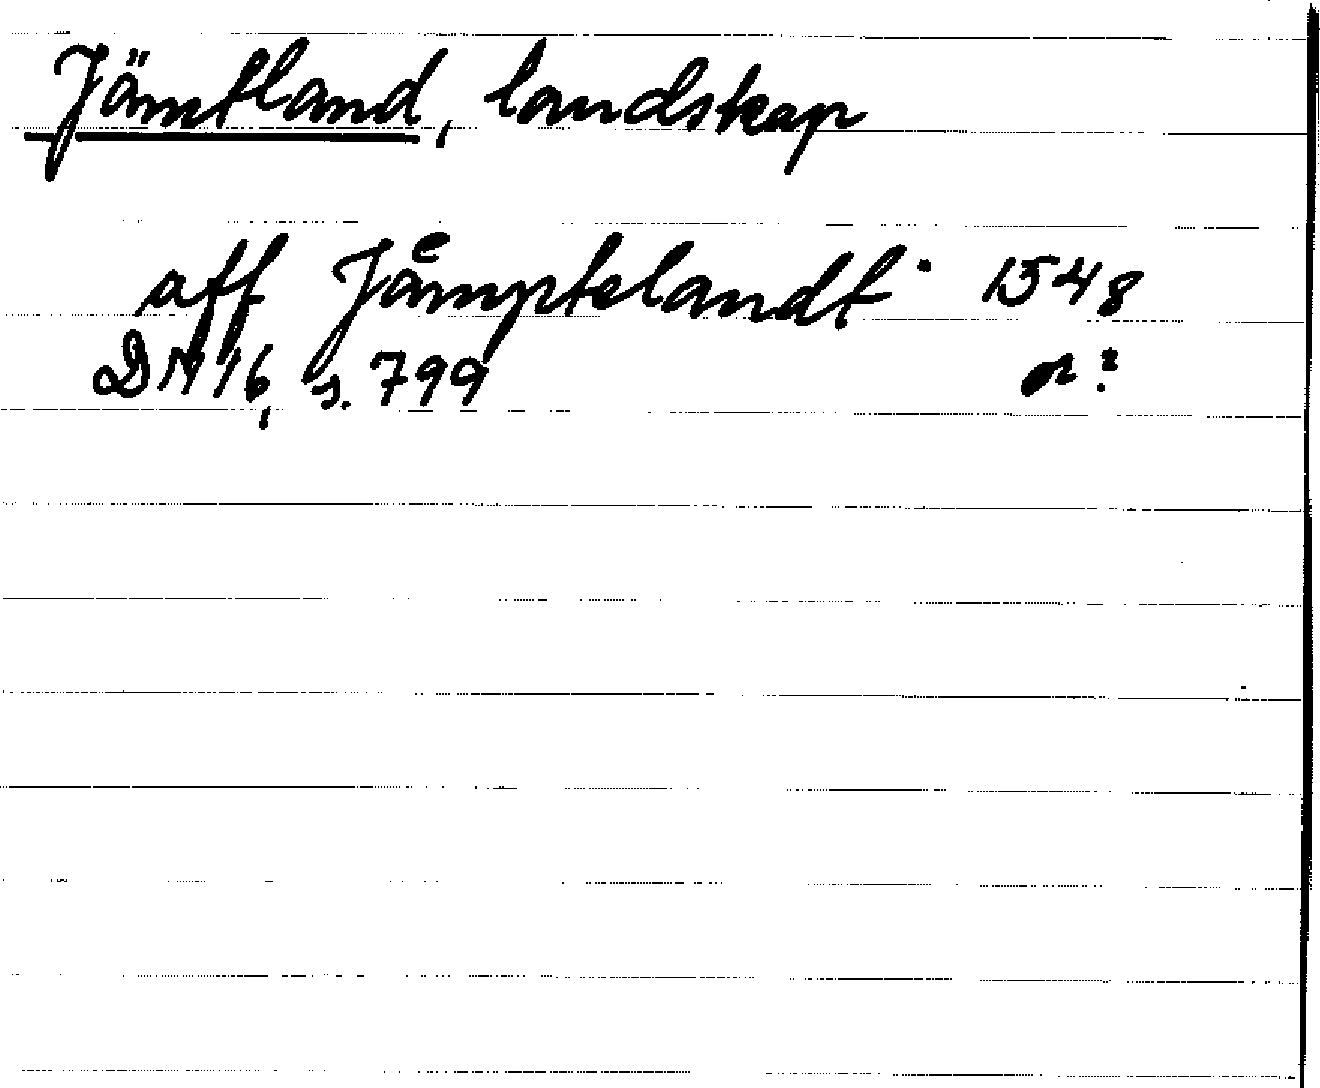 Jämtland, landskap
aff Jaͤmptelandt 1548
DN 16, s. 799 or?